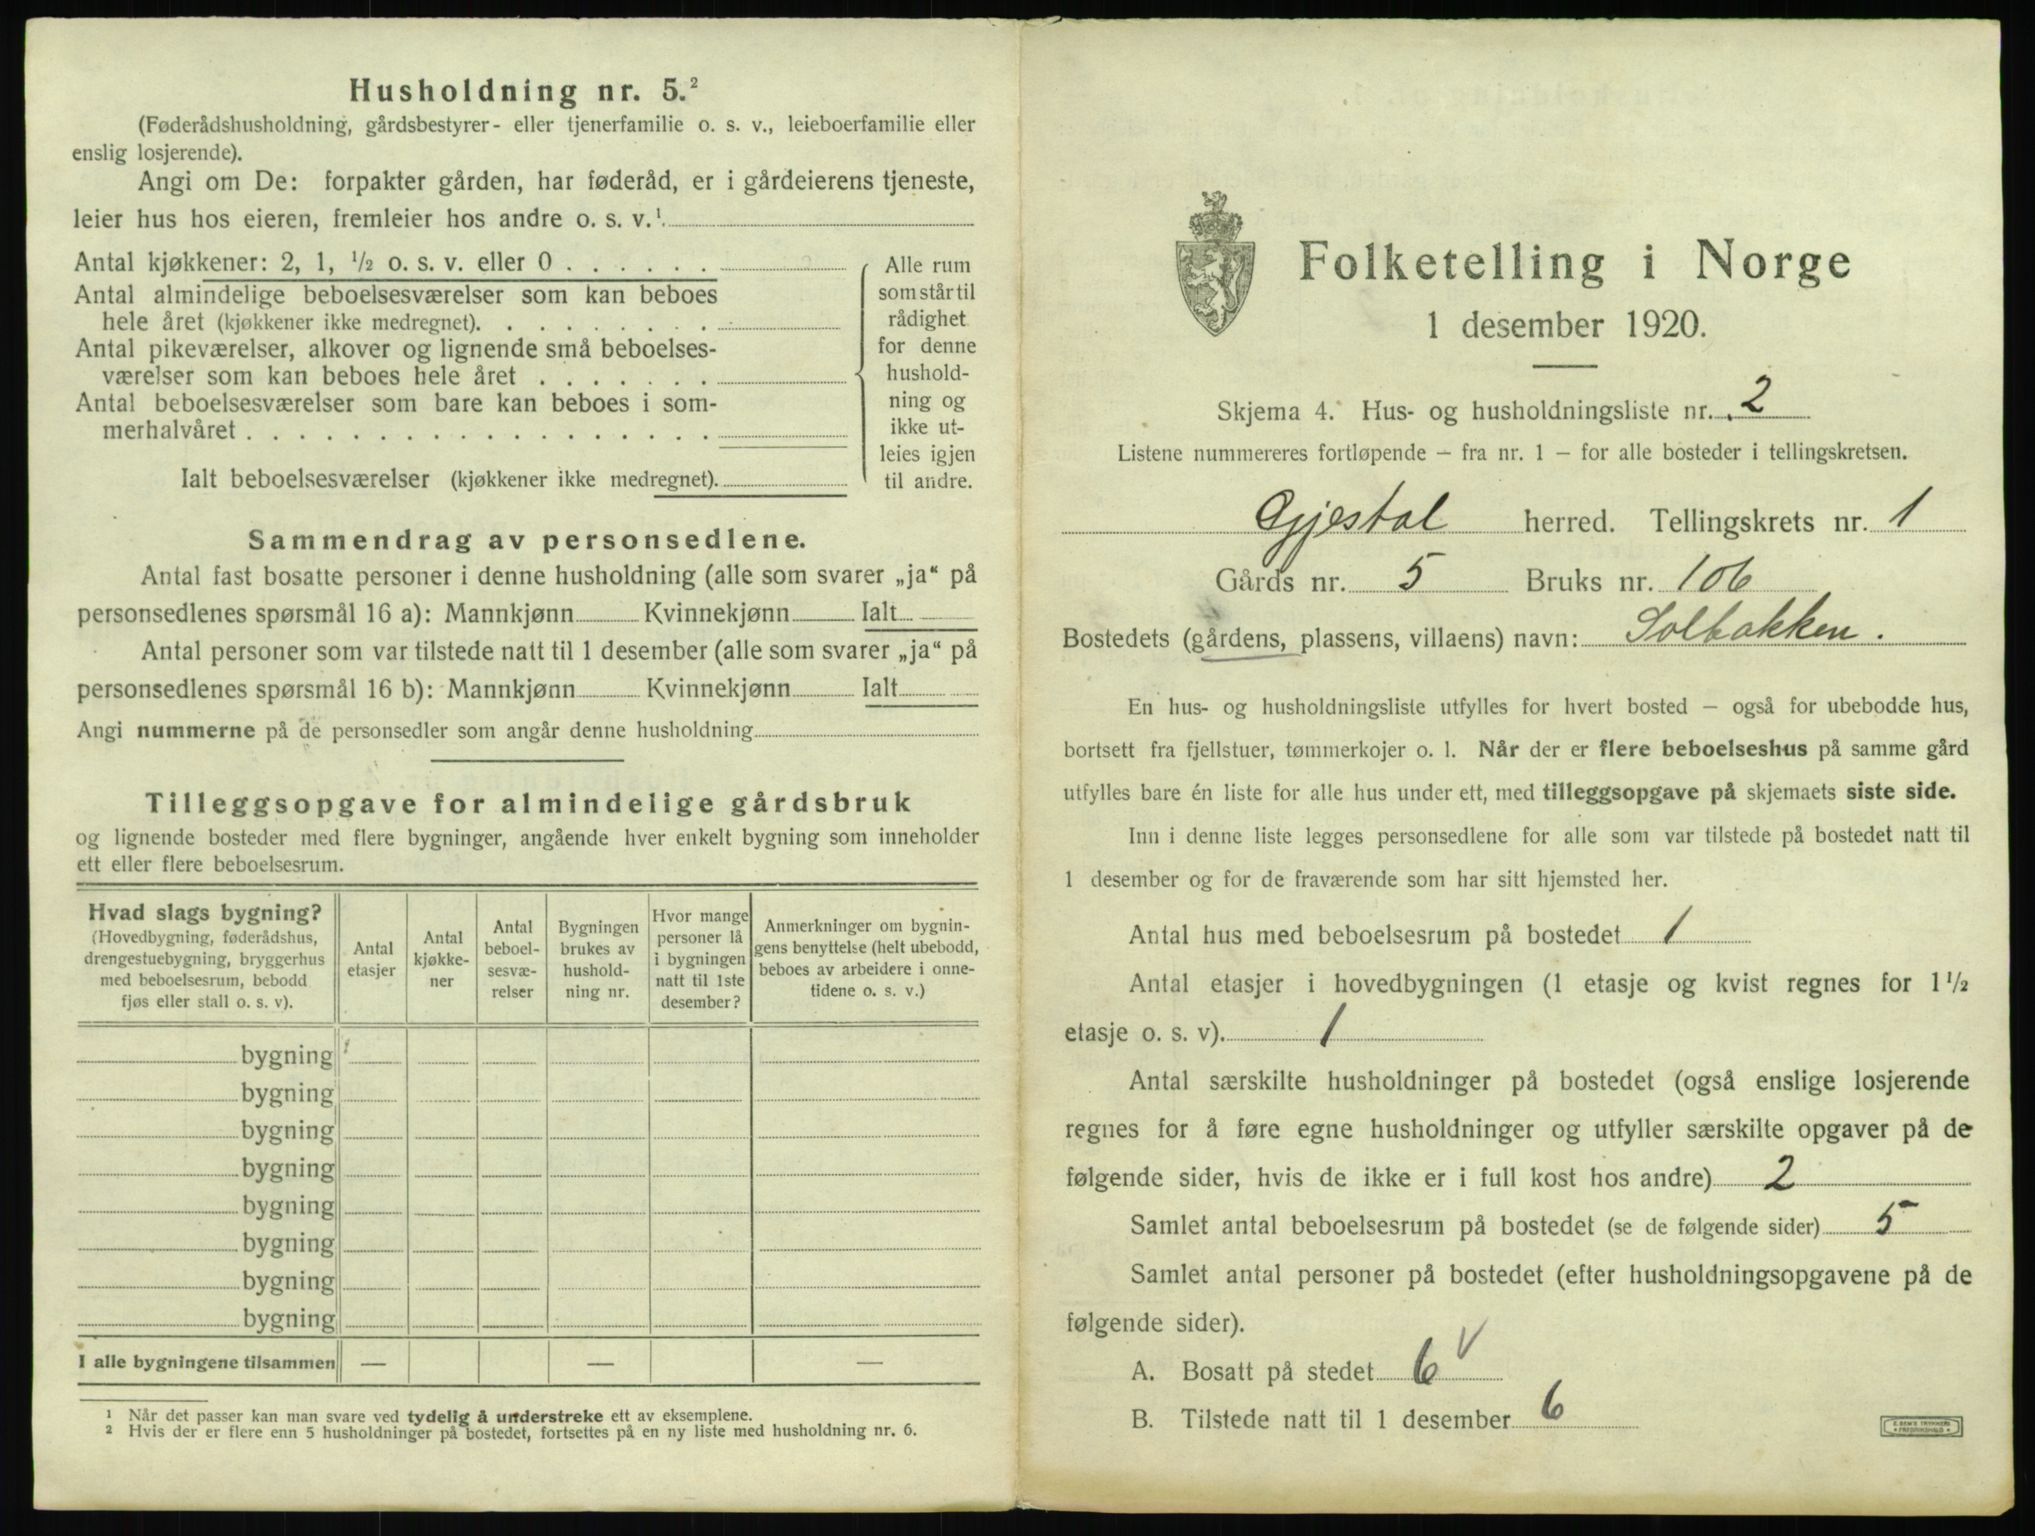 Husholdning nr. 5.²
(Føderådshusholdning, gårdsbestyrer- eller tjenerfamilie o. s. v., leieboerfamilie eller
enslig losjerende).
Angi om De: forpakter gården, har føderåd, er i gårdeierens tjeneste,
leier hus hos eieren, fremleier hos andre o. s. v.¹
Antal kjøkkener: 2, 1, ½ o. s. v. eller 0
Antal almindelige beboelsesværelser som kan beboes
hele året (kjøkkener ikke medregnet).
Antal pikeværelser, alkover og lignende små beboelses-
værelser som kan beboes hele året
Antal beboelsesværelser som bare kan beboes i som-
merhalvåret
Ialt beboelsesværelser (kjøkkener ikke medregnet).
Alle rum
som står til
rådighet
for denne
hushold-
ning og
ikke ut-
leies igjen
til andre.
Sammendrag av personsedlene.
Antal fast bosatte personer i denne husholdning (alle som svarer „ja“ på
personsedlenes spørsmål 16 a): Mannkjønn Kvinnekjønn Ialt
Antal personer som var tilstede natt til 1 desember (alle som svarer „ja“ på
personsedlenes spørsmål 16 b): Mannkjønn Kvinnekjønn Ialt
Angi nummerne på de personsedler som angår denne husholdning
Tilleggsopgave for almindelige gårdsbruk
og lignende bosteder med flere bygninger, angående hver enkelt bygning som inneholder
ett eller flere beboelsesrum.
Hvad slags bygning?
(Hovedbygning, føderådshus,
drengestuebygning, bryggerhus
med beboelsesrum, bebodd
fjøs eller stall o. s. v).
Antal
etasjer
Antal
kjøkke-
ner
Antal
beboel-
sesvæ-
relser
Bygningen
brukes av
hushold-
ning nr.
Hvor mange
personer lå
i bygningen
natt til 1ste
desember?
Anmerkninger om bygnin-
gens benyttelse (helt ubebodd,
beboes av arbeidere i onne-
tidene o. s. v.)
bygning
bygning
bygning
bygning
bygning
bygning
bygning
bygning
I alle bygningene tilsammen — — —
¹ Når det passer kan man svare ved tydelig å understreke ett av eksemplene.
² Hvis der er flere enn 5 husholdninger på bostedet, fortsettes på en ny liste med husholdning nr. 6.
Folketelling i Norge
1 desember 1920.
Skjema 4. Hus- og husholdningsliste nr. 2
Listene nummereres fortløpende – fra nr. 1 – for alle bosteder i tellingskretsen.
Gjestal herred. Tellingskrets nr. 1
Gårds nr. 5 Bruks nr. 106
Bostedets (gårdens, plassens, villaens) navn: Solbakken.
En hus- og husholdningsliste utfylles for hvert bosted – også for ubebodde hus,
bortsett fra fjellstuer, tømmerkojer o. l. Når der er flere beboelseshus på samme gård
utfylles bare én liste for alle hus under ett, med tilleggsopgave på skjemaets siste side.
Inn i denne liste legges personsedlene for alle som var tilstede på bostedet natt til
1 desember og for de fraværende som har sitt hjemsted her.
Antal hus med beboelsesrum på bostedet 1
Antal etasjer i hovedbygningen (1 etasje og kvist regnes for 1½
etasje o. s. v). 1
Antal særskilte husholdninger på bostedet (også enslige losjerende
regnes for å føre egne husholdninger og utfyller særskilte opgaver på de
følgende sider, hvis de ikke er i full kost hos andre) 2
Samlet antal beboelsesrum på bostedet (se de følgende sider) 5
Samlet antal personer på bostedet (efter husholdningsopgavene på de
følgende sider).
A. Bosatt på stedet 6 v
B. Tilstede natt til 1 desember 6